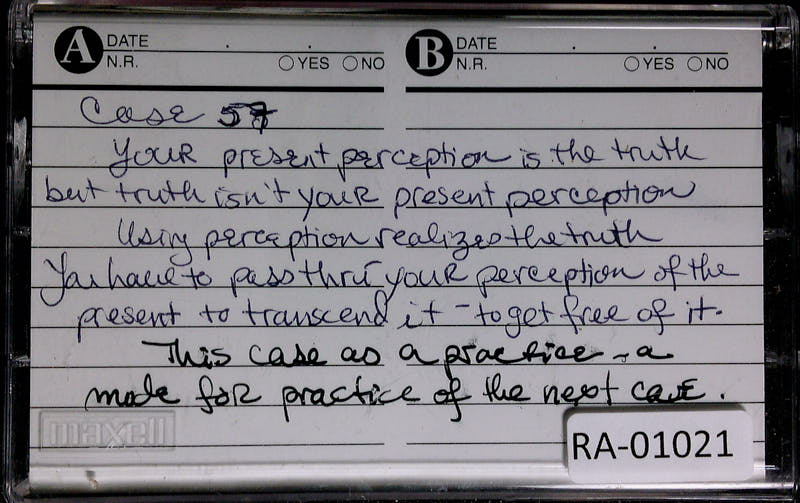 A DATE . . B DATE . .
N.R. YES NO N.R. YES NO
Case 57
Your present perception is the truth
but truth isn't your present perception
Using perception realizes the truth
You have to pass thru your perception of the
present to transcend it - to get free of it.
This case as a practice - a
mode for practice of the next case.
maxell
RA-01021